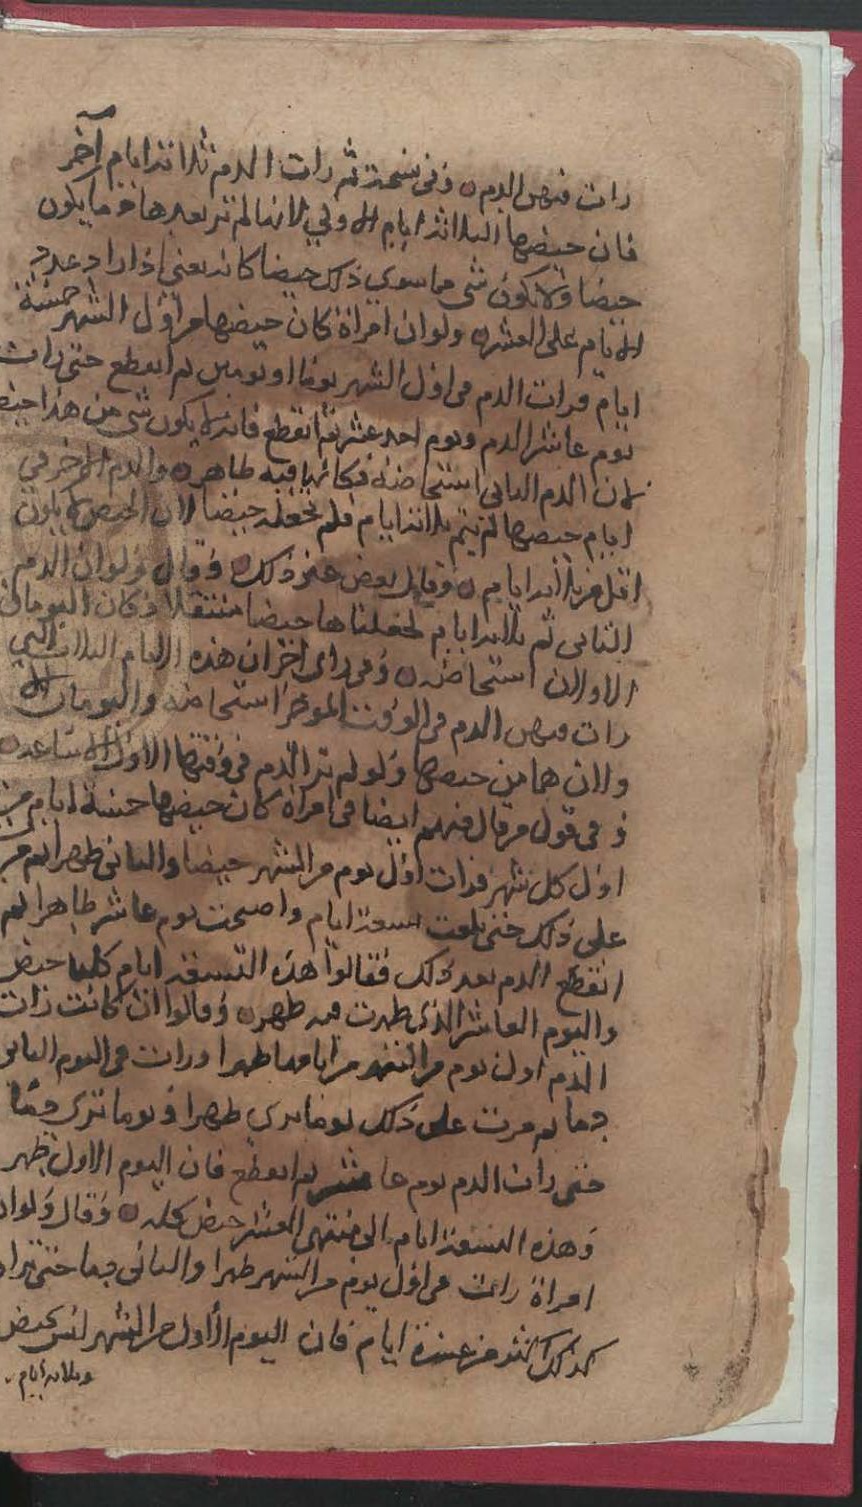 رات فيهن الدم ه وفي نسخة ثم رات الدم ثلاثة ايام آخر
فان حيضها الثلاثة ايام الاولي لانها لم تر بعدها دما يكون
حيضا ولا يكون شي مما سوي ذلك حيضا كانه يعني اذا زاد عدد
الايام على العشر ه ولو ان امراة كان حيضها من اول الشهر خمسة
ايام فرات الدم في اول الشهر يوما او يومين ثم انقطع حتى رات
يوم عاشر الدم ويوم احد عشر ثم انقطع فانه لا يكون شي من هذا حيض
لان الدم الثاني استحاضة فكانها فيه طاهر ه والدم الاخر في
ايام حيضها لم يتم ثلاثة ايام فلم نجعله حيضا لان الحيض لا يكون
اقل من ثلاثة ايام ه وقال بعض غير ذلك ه وقال ولو ان الدم
الثاني تم ثلاثة ايام لجعلناها حيضا منتقلا وكان اليومان
الاولان استحاضة ه وفي راى اخر ان هذه الايام الثلاث التي
رات فيهن الدم في الوقت الموخر استحاضة واليومان
الاولان هما من حيضها ولو لم تر الدم في وقتها الاول الا ساعة ه
وفي قول من قال منهم ايضا في امراة كان حيضها خمسة ايام من
اول كل شهر فرات اول يوم من الشهر حيضا والثاني طهرا ثم
على ذلك حتى بلغت تسعة ايام واصبحت يوم عاشر طاهرا ثم
انقطع الدم بعد ذلك فقالوا هذه التسعة ايام كلها حيض
واليوم العاشر الذي طهرت فيه طهر ه وقالوا ان كانت ذات
الدم اول يوم من الشهر من ايامها طهرا ورات في اليوم الثاني
دما ثم مرت على ذلك يوما ترى طهرا ويوما ترى دما
حتى رات الدم يوم عاشر ثم انقطع فان اليوم الاول طهر
وهذه التسعة ايام الى منتهى العشر حيض كله ه وقال ولو ان
امراة رات في اول يوم من الشهر طهرا والثاني دما حتى ترا
كذلك اكثر من عشرة ايام فان اليوم الاول من الشهر ليس بحيض
وثلاثة ايام